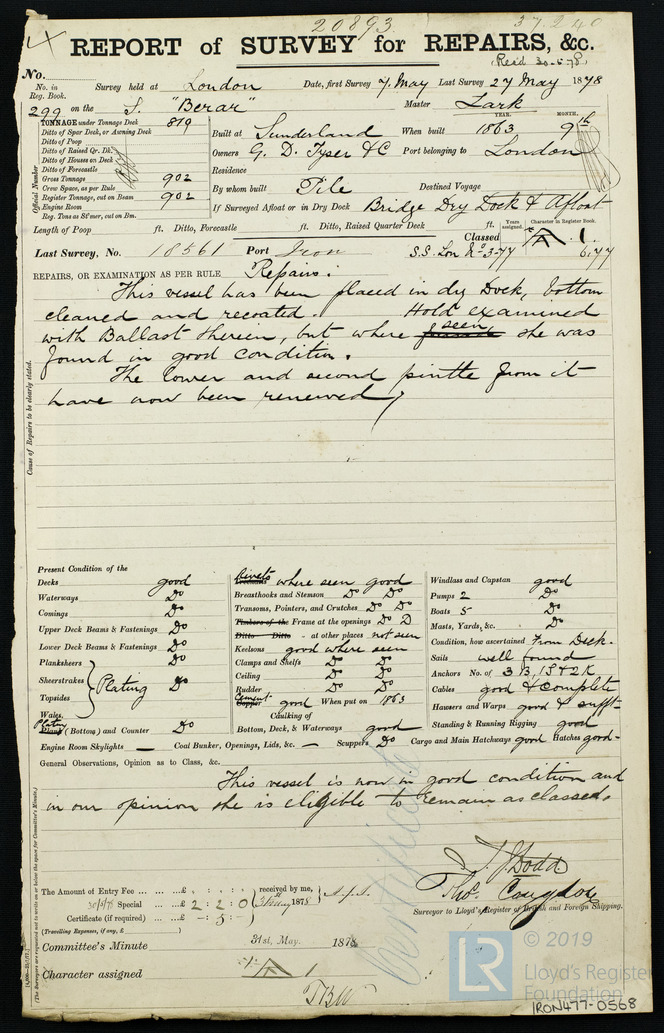 20893
37240
REPORT of SURVEY for REPAIRS, &c.
Rec'd 30.5.78
No.
No. in Reg. Book. Survey held at London Date, first Survey 7. May Last Survey 27 May 1878
299 on the S. "Berar" Master Lark
TONNAGE under Tonnage Deck 879
Ditto of Spar Deck, or Awning Deck
Ditto of Poop
Ditto of Raised Qr. Dk.
Ditto of Houses on Deck
Ditto of Forecastle
Gross Tonnage 902
Crew Space, as per Rule
Register Tonnage, cut on Beam 902
Engine Room
Reg. Tons as St'mer, cut on Bm.
Official Number
Built at Sunderland When built YEAR. 1863 MONTH. 9
Owners G. D. Tyser & C Port belonging to London
Residence
By whom built Pile Destined Voyage
If Surveyed Afloat or in Dry Dock Bridge Dry Dock & Afloat
Length of Poop ft. Ditto, Forecastle ft. Ditto, Raised Quarter Deck ft.
Years assigned. Character in Register Book.
Classed A 1.
Last Survey, No. 18561 Port Iron S.S. Lon No 3-77 6,77
REPAIRS, OR EXAMINATION AS PER RULE Repairs:
This vessel has been placed in dry Dock, bottom
cleaned and recoated. Hold examined
with Ballast therein, but where seen she was
found in good condition.
The lower and second pintle from it
have now been renewed
Cause of Repairs to be clearly stated.
Present Condition of the
Decks good
Waterways Do
Comings Do
Upper Deck Beams & Fastenings Do
Lower Deck Beams & Fastenings Do
Planksheers Do
Sheerstrakes Plating Do
Topsides
Wales
Plating Plank (Bottom) and Counter Do
Rivets where seen good
Breasthooks and Stemson Do Do
Transoms, Pointers, and Crutches Do Do
Timbers of the Frame at the openings Do D
Ditto Ditto - at other places not seen
Keelsons good where seen
Clamps and Shelfs Do Do
Ceiling Do Do
Rudder Do Do
Cement Copper good When put on 1863
Caulking of
Bottom, Deck, & Waterways good
Windlass and Capstan good
Pumps 2 Do
Boats 5 Do
Masts, Yards, &c. Do
Condition, how ascertained From Deck.
Sails well found
Anchors No. of 3 B, 1 S & 2 K
Cables good & complete
Hawsers and Warps good & sufft
Standing & Running Rigging good
Engine Room Skylights — Coal Bunker, Openings, Lids, &c. — Scuppers Do Cargo and Main Hatchways good Hatches good
General Observations, Opinion as to Class, &c.
This vessel is now in good condition and
in our opinion she is eligible to remain as classed.
Certificate
(The Surveyors are requested not to write on or below the space for Committee's Minute.)
J. J. Dodd
Thos Congdon
Surveyor to Lloyd's Register of British and Foreign Shipping.
The Amount of Entry Fee ... ... ...£ : : received by me,
30/5/78 Special ... ...£ 2 : 2 : 0 31 May 1878
Certificate (if required) ...£ - 5 -
(Travelling Expenses, if any, £ )
Committee's Minute 31st. May. 1878
Character assigned A 1
© 2019
LR
Lloyd's Register
Foundation
IRON477-0568